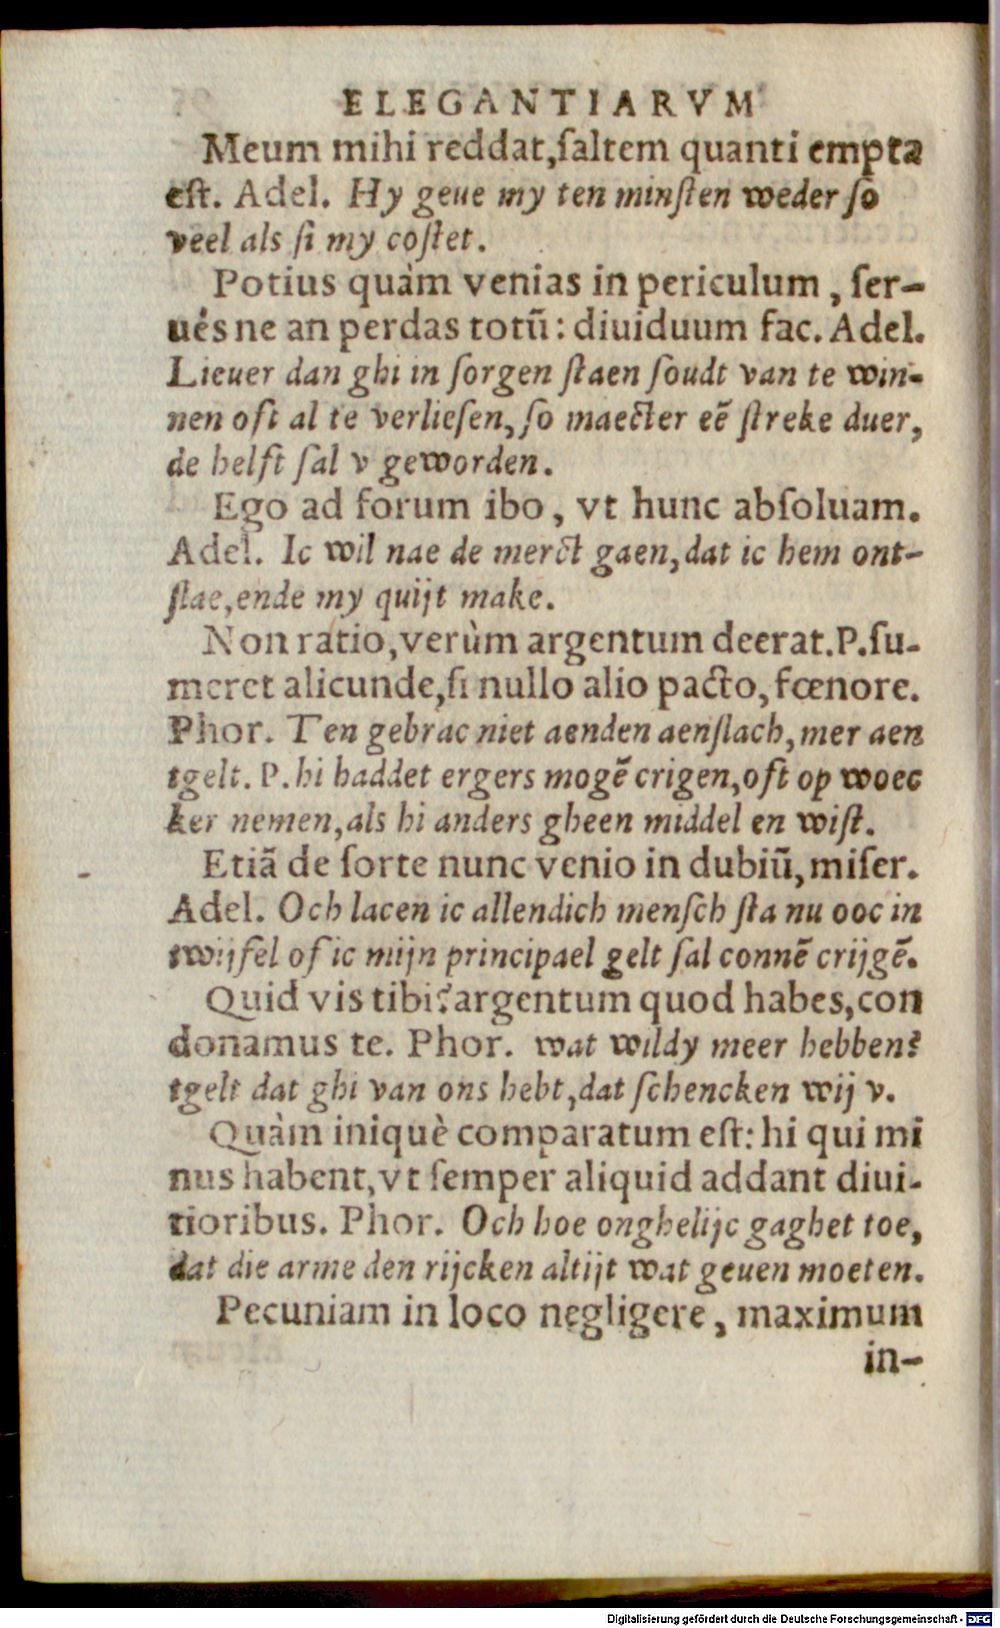 ELEGANTIARVM
Meum mihi reddat,ſaltem quanti empta
eſt. Adel. Hy geue my ten minſten weder ſo
veel als ſi my coſtet.
Potius quàm venias in periculum, ſer-
uésne an perdas totũ: diuiduum fac. Adel.
Lieuer dan ghi in ſorgen ſtaen ſoudt van te win-
nen oft al te verlieſen, ſo maecter eẽ ſtreke duer,
de helft ſal v geworden.
Ego ad forum ibo, vt hunc abſoluam.
Adel. Ic wil nae de merct gaen,dat ic hem ont-
ſlae,ende my quijt make.
Non ratio,verùm argentum deerat.P.ſu-
meret alicunde,ſi nullo alio pacto, fœnore.
Phor. Ten gebrac niet aenden aenſlach, mer aen
tgelt. P.hi haddet ergers mogẽ crigen,oft op woec
ker nemen,als hi anders gheen middel en wiſt.
Etiã de ſorte nunc venio in dubiũ,miſer.
Adel. Och lacen ic allendich menſch ſta nu ooc in
twijfel of ic mijn principael gelt ſal connẽ crijgẽ.
Quid vis tibi?argentum quod habes,con
donamus te. Phor. wat wildy meer hebben?
tgelt dat ghi van ons hebt,dat ſchencken wij v.
Quàm iniquè comparatum eſt: hi qui mi
nus habent,vt ſemper aliquid addant diui-
tioribus. Phor. Och hoe onghelijc gaghet toe,
dat die arme den rijcken altijt wat geuen moeten.
Pecuniam in loco negligere, maximum
in-
Digitalisierung gefördert durch die Deutsche Forschungsgemeinschaft - DFG